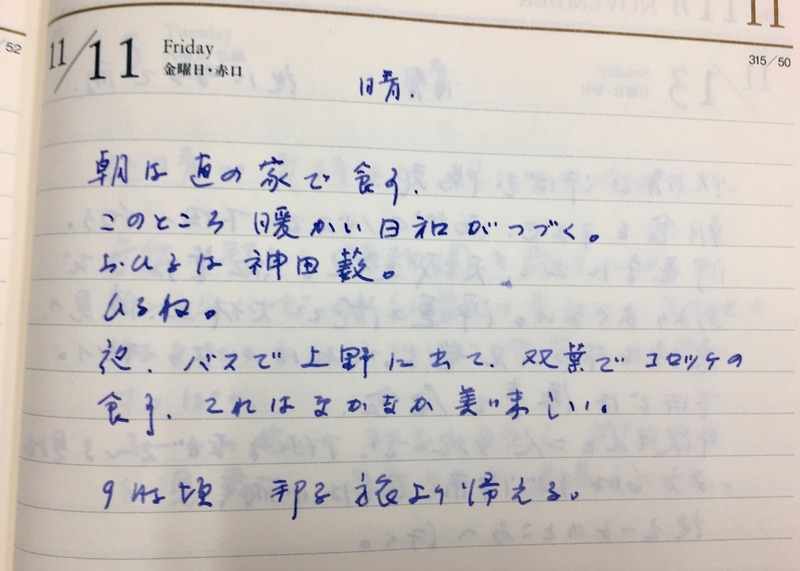 11
52
11/11 Friday
金曜日・赤口
315/50
晴.
朝は 直の家で食す.
このところ 暖かい日和がつづく。
おひるは 神田藪。
ひるね。
夜、バスで上野に出て、双葉でコロッケの
食す. これはなかなか美味しい。
9時頃 邦子 旅より帰える。